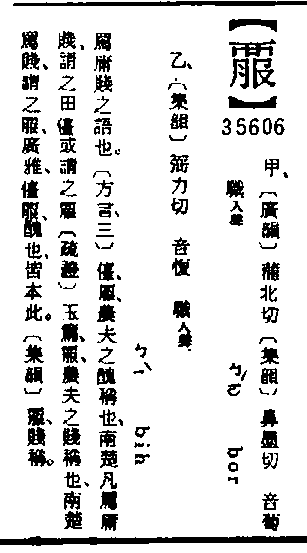 【𧟵】
35606
甲、〔廣韻〕蒲北切〔集韻〕鼻墨切 音蔔
職入聲 ㄅㄛˊ bor
乙、〔集韻〕弼力切 音愎 職入聲
ㄅㄧˋ bih
罵庸賤之語也。〔方言、三〕儓、𧟵、農夫之醜稱也、南楚凡罵庸
賤、謂之田儓、或謂之𧟵〔疏證〕玉篇、𧟵、農夫之賤稱也、南楚
罵賤、謂之𧟵、廣雅、儓、𧟵、醜也、皆本此。〔集韻〕𧟵、賤稱。